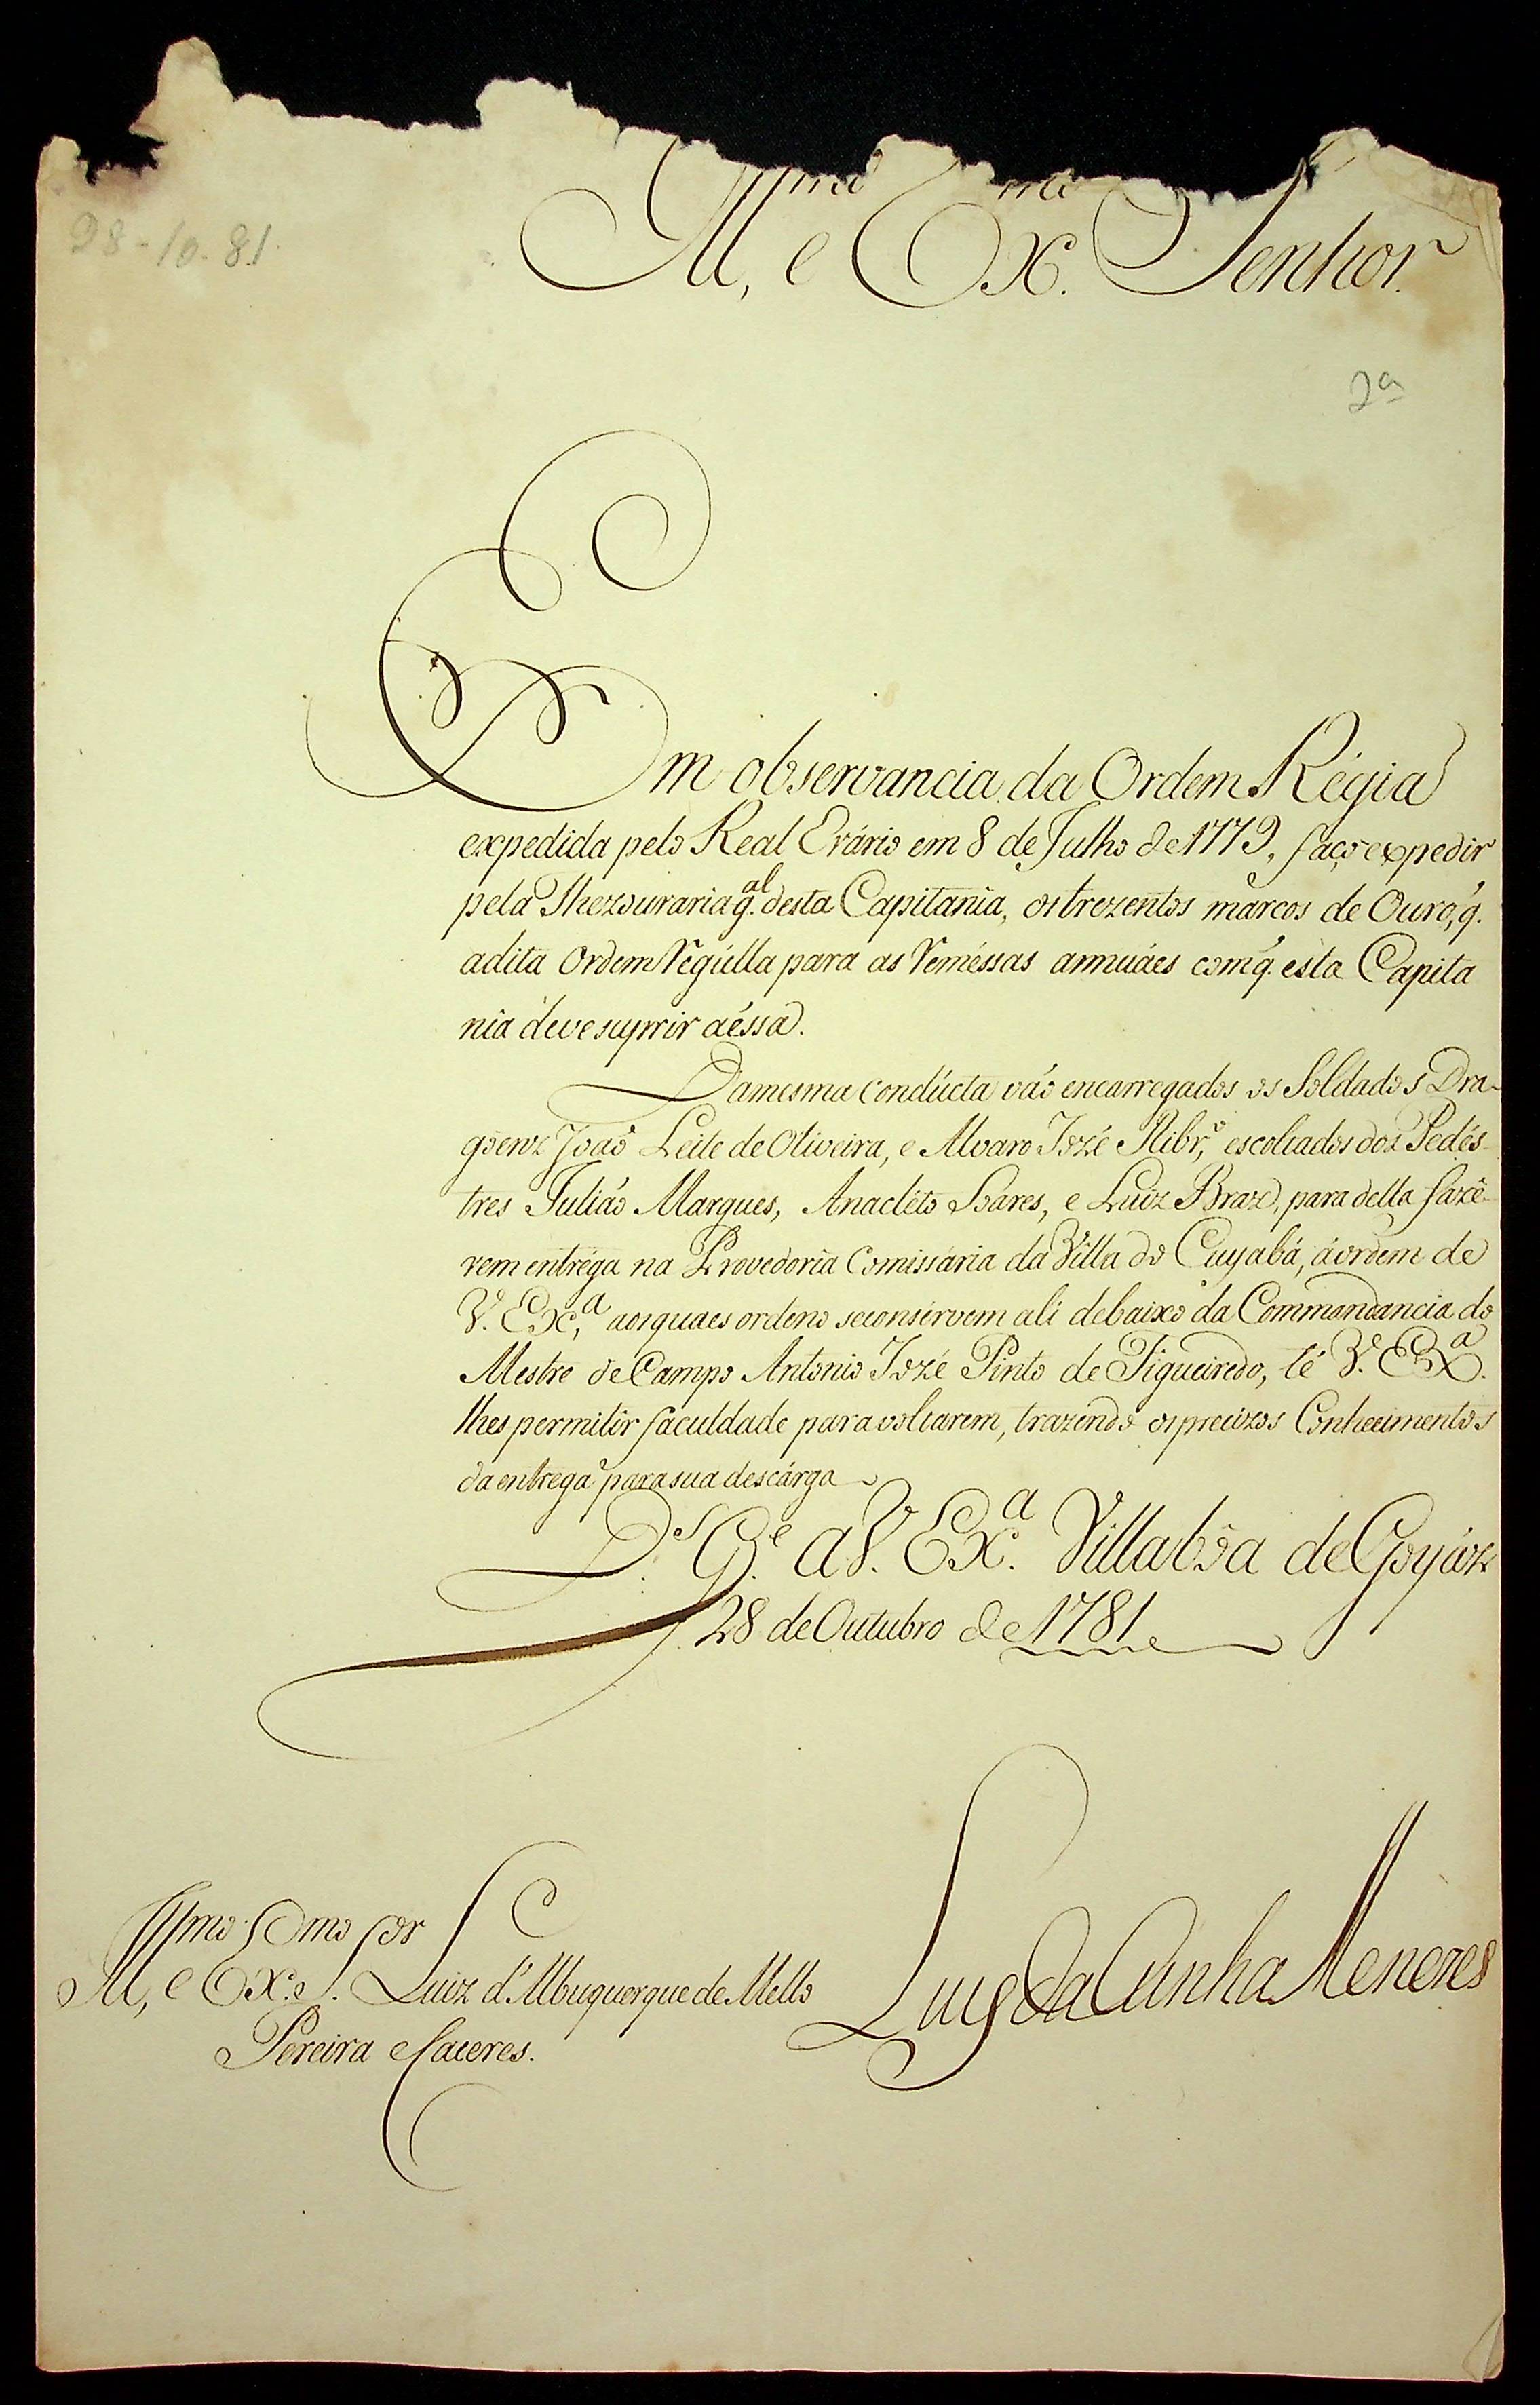 28-10-81.
Ill,mo e Ex.mo Senhor.
2ª
Em observancia da Ordem Régia
expedida pelo Real Erário em 8 de Julho de 1779, faço expedir
pela Thezouraria g.al desta Capitania, os trezentos marcos de Ouro, q.
adita Ordem regúlla para as remèssas annuáes com q. ésta Capita
nia déve suprir aéssa.
Damesma condúcta váo encarregados os Soldados Dra-
goenz Joaõ Leite de Oliveira, e Alvaro Jozé Ribr,o escoltados dos Pedés-
tres Juliáo Marques, Anacléto Soares, e Luiz Braz, para della fazê-
rem entréga na Provedoria Comissária da Villa do Cuyabá, áordem de
V. Exc,a aosquaes ordeno seconsérvem ali debaixo da Commandancia do
Mestre de Campo Antonio Jozé Pinto de Figueiredo, té V. EXa.
lhes permitir faculdade para voltarem, trazendo osprecizos Conhecimentos
da entrega para sua descárga
D.s G.e a V. Exc.a Villabôa de Goyáz
28 de Outubro de 1781
Ill,mo e Ex.mo S.or Luiz d'Albuquerque de Mello
Pereira e Caceres.
Luis da Cunha Menezes